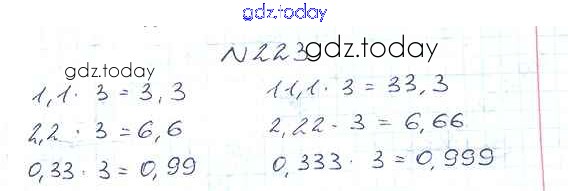 gdz.today
N 223 gdz.today
gdz.today
1,1 · 3 = 3,3
2,2 · 3 = 6,6
0,33 · 3 = 0,99
11,1 · 3 = 33,3
2,22 · 3 = 6,66
0,333 · 3 = 0,999